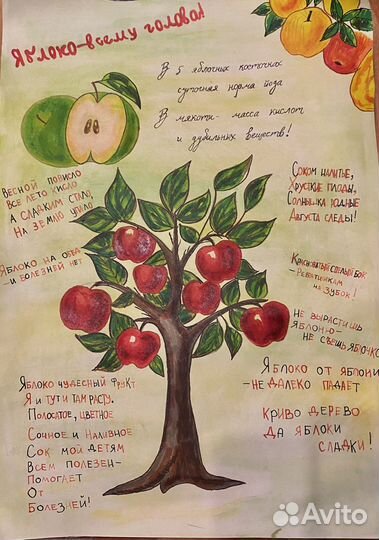 Яблоко-всему голова!
1
В 5 яблочных косточках
суточная норма йода
В мякоти - масса кислот
и дубильных веществ!
Весной повисло
Все лето кисло
А сладким стало,
На землю упало
Соком налитые,
Хрусткие плоды,
Солнышка родные
Августа следы!
Яблоко на обед
- и болезней нет
спелый бок
- Ребятишкам
на зубок!
Не вырастишь
яблоню-
не съешь яблочко
Яблоко чудесный фрукт
Я и тут и там расту.
Полосатое, цветное
Сочное и наливное
Сок мой детям
Всем полезен-
Помогает
От
Болезней!
Яблоко от яблони
-не далеко падает
Криво дерево
Да яблоки
сладки!
Avito